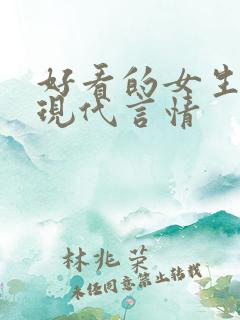 好看的女生
現代言情
林兆荣
未经同意禁止转载